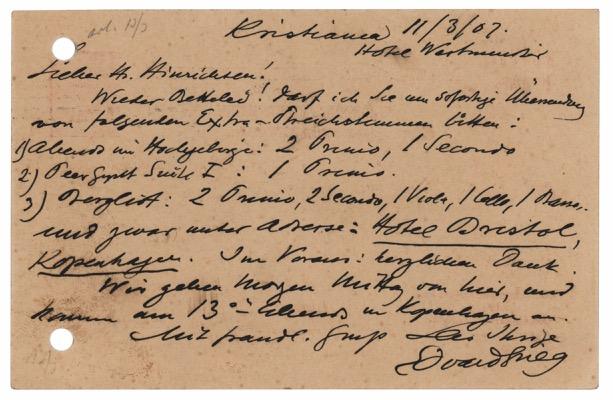 Kristiania 11/3/07.
Hotel Westminster
Lieber Hr. Hinrichsen!
Wieder Bettelei! Darf ich Sie um sofortige Übersendung
von folgenden Extra-Streichstimmen bitten:
1) Abend im Hochgebirge: 2 Primo, 1 Secondo
2) Peer Gynt Suite I: 1 Primo.
3) Bergliot: 2 Primo, 2 Secondo, 1 Viola, 1 Cello, 1 Basso.
und zwar unter Adresse: Hotel Bristol,
Kopenhagen. Im Voraus: herzlichen Dank.
Wir gehen morgen Mittag von hier, und
kommen am 13º Abends in Kopenhagen an.
Mit freundl. Gruß Ihr
Edvard Grieg